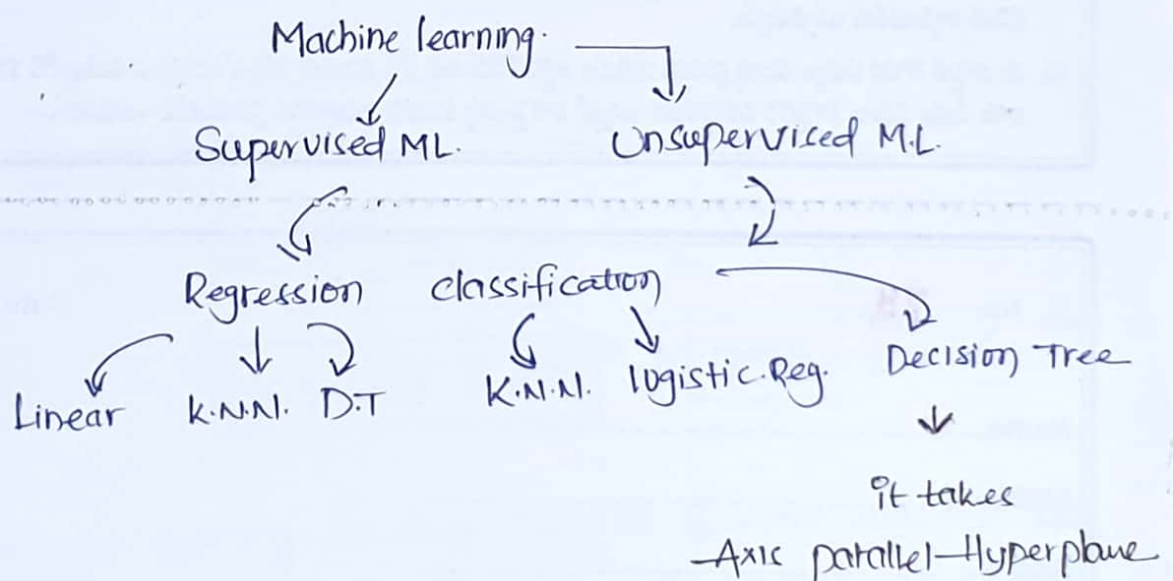 Machine learning.
Supervised ML.
Unsupervised M.L.
Regression
classification
Linear
K.N.N.
D.T
K.N.N.
logistic.Reg.
Decision Tree
it takes
Axis parallel Hyperplane